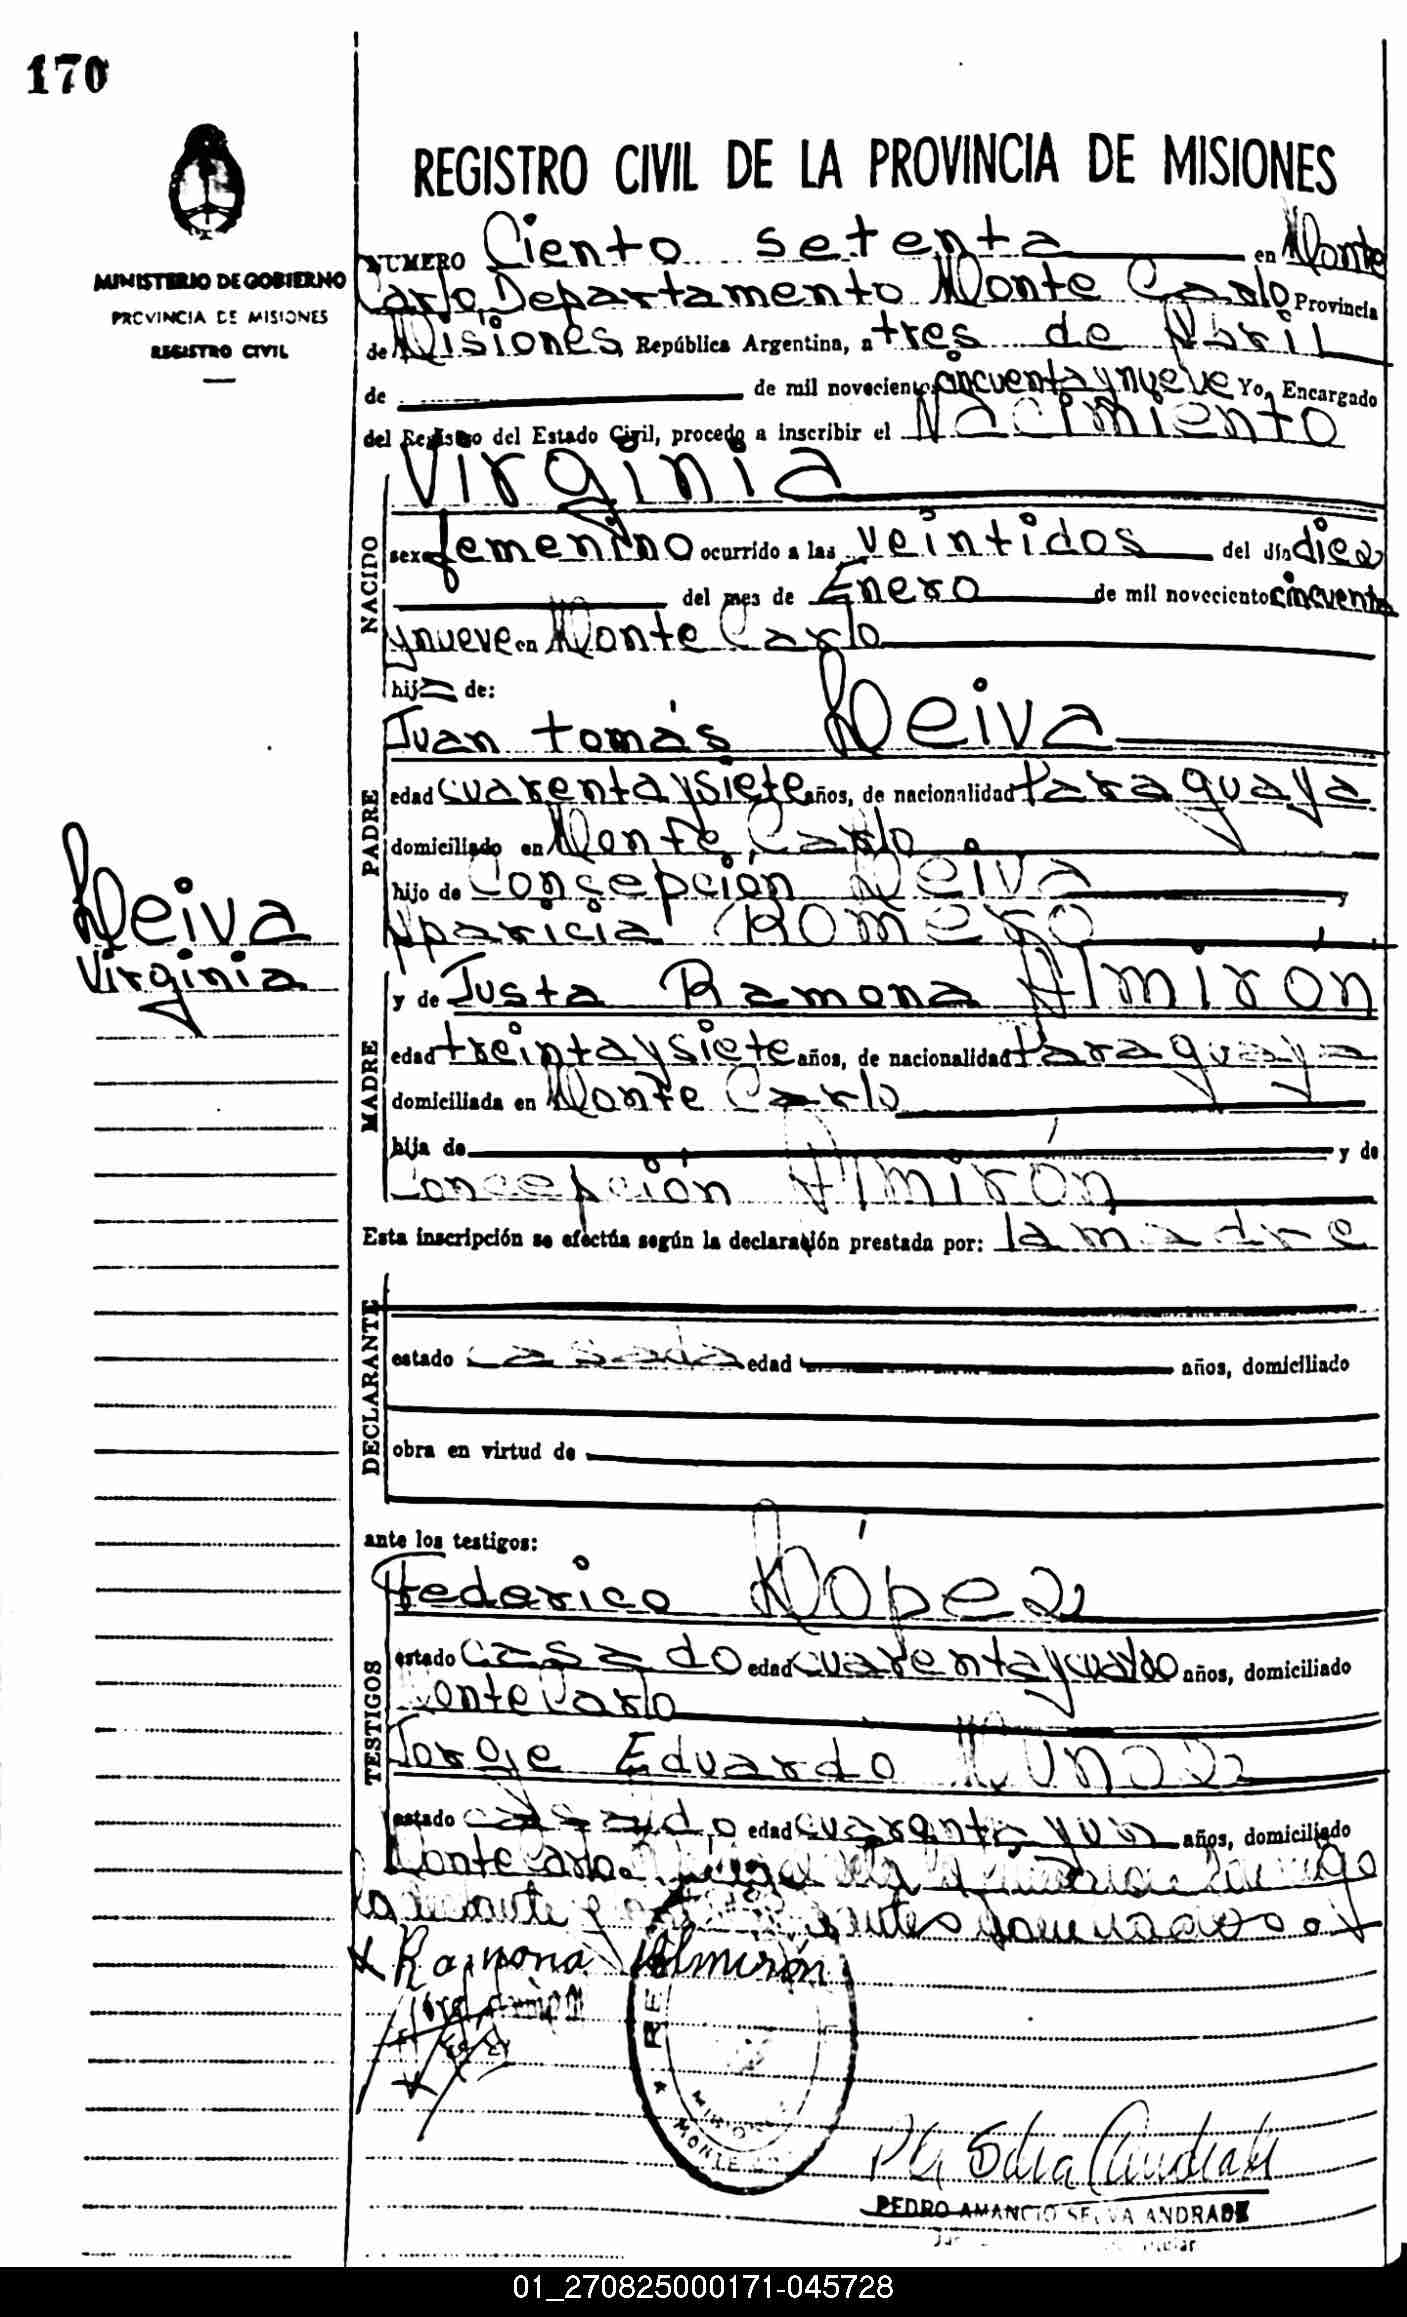 170
MINISTERIO DE GOBIERNO
PROVINCIA DE MISIONES
REGISTRO CIVIL
REGISTRO CIVIL DE LA PROVINCIA DE MISIONES
NUMERO Ciento setenta en Monte
Carlo, Departamento Monte Carlo Provincia
de Misiones República Argentina, a tres de Abril
de de mil novecientos cincuenta y nueve Yo, Encargado
del Registro del Estado Civil, procedo a inscribir el Nacimiento
NACIDO
Virginia
sexo femenino ocurrido a las veintidos del día diez
del mes de Enero de mil novecientos cincuenta
y nueve en Monte Carlo
hija de:
PADRE
Juan tomás Leiva
edad cuarenta y siete años, de nacionalidad Paraguaya
domiciliado en Monte Carlo
hijo de Concepción Leiva y
Aparicia Romero
Leiva
Virginia
MADRE
y de Justa Ramona Almirón
edad treinta y siete años, de nacionalidad Paraguaya
domiciliada en Monte Carlo
hija de y de
Concepción Almirón
Esta inscripción se efectúa según la declaración prestada por: la madre
DECLARANTE
estado casada edad años, domiciliado
obra en virtud de
ante los testigos:
TESTIGOS
Federico López
estado casado edad cuarenta y cuatro años, domiciliado
Monte Carlo
Jorge Eduardo
estado casado edad cuarenta y un años, domiciliado
Monte Carlo.
Ramona Almirón
MISIONES
MONTE
PEDRO AMANCIO SELVA ANDRADE
01_270825000171-045728